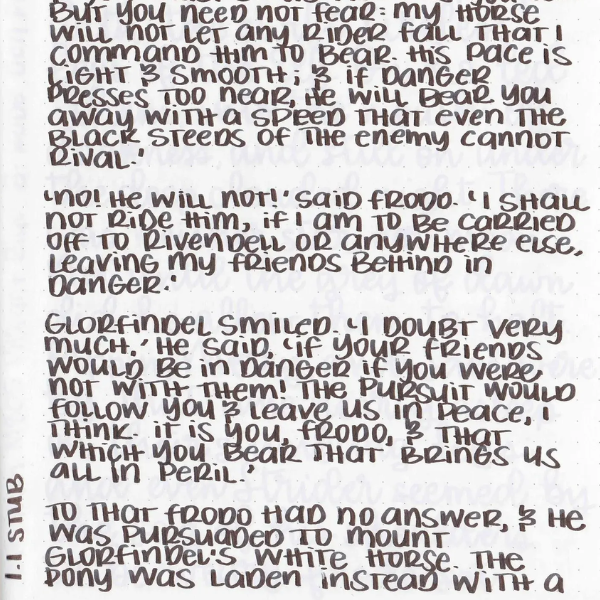 But you need not fear: my horse
will not let any rider fall that I
command him to bear. His pace is
light & smooth; & if danger
presses too near, he will bear you
away with a speed that even the
black steeds of the enemy cannot
rival.'
'No! He will not!' said Frodo. 'I shall
not ride him, if I am to be carried
off to Rivendell or anywhere else,
leaving my friends behind in
danger.'
Glorfindel smiled. 'I doubt very
much,' he said, 'if your friends
would be in danger if you were
not with them! The pursuit would
follow you & leave us in peace, I
think. It is you, Frodo, & that
which you bear that brings us
all in peril.'
To that Frodo had no answer, & he
was pursuaded to mount
Glorfindel's white horse. The
pony was laden instead with a
1.1 STUB